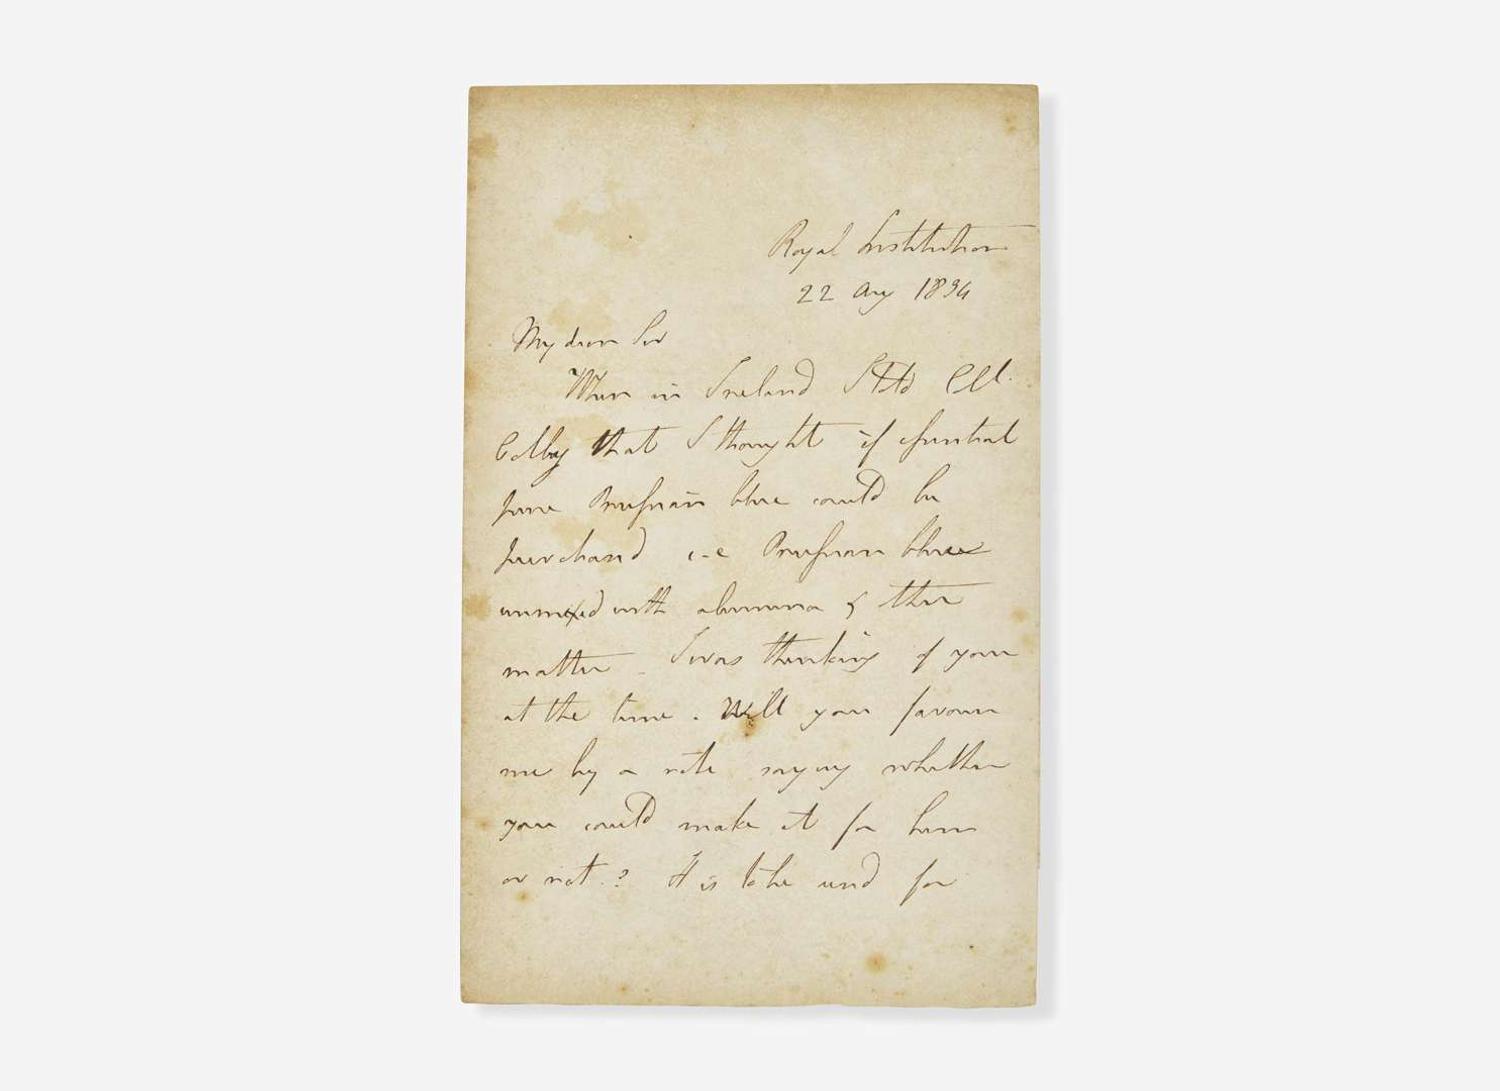 Royal Institution
22 Aug 1834
My dear Sir
When in Ireland I told Col.
Colby that I thought if essential
pure Prussian blue could be
purchased i-e Prussian blue
unmixed with alumina & other
matter _ I was thinking of you
at the time. Will you favour
me by a note saying whether
you could make it for him
or not.? It is to be used for